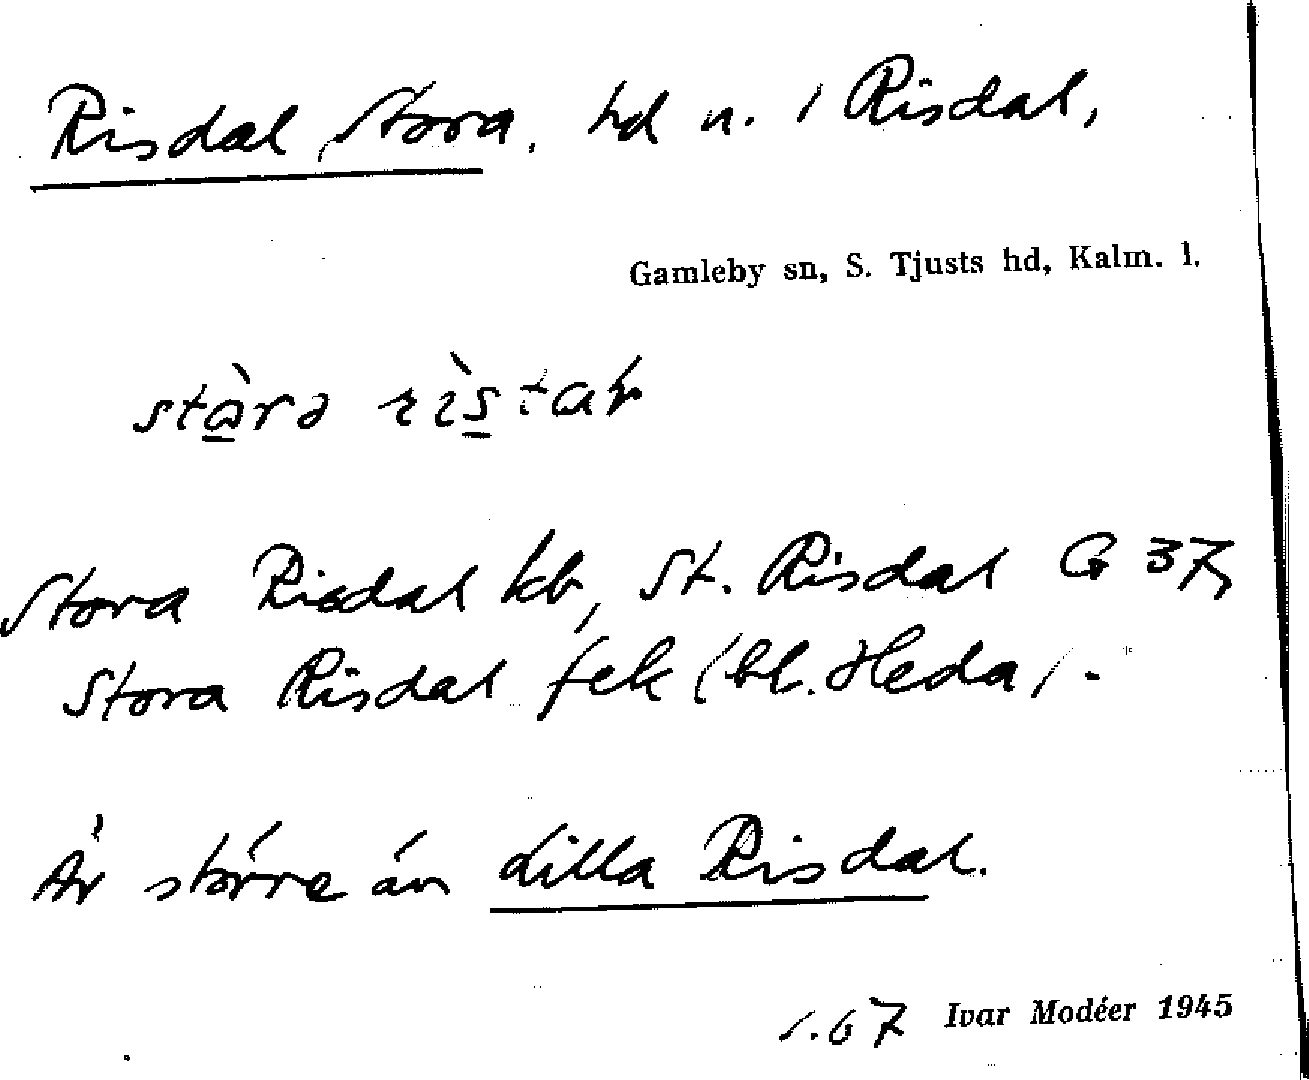 Risdal Stora, hd n. i Risdal,
Gamleby sn, S. Tjusts hd, Kalm. l.
Stora Risdal kb, St. Risdal G 37,
Stora Risdal fek (bl. Heda).
Är större än Lilla Risdal.
1.67 Ivar Modéer 1945